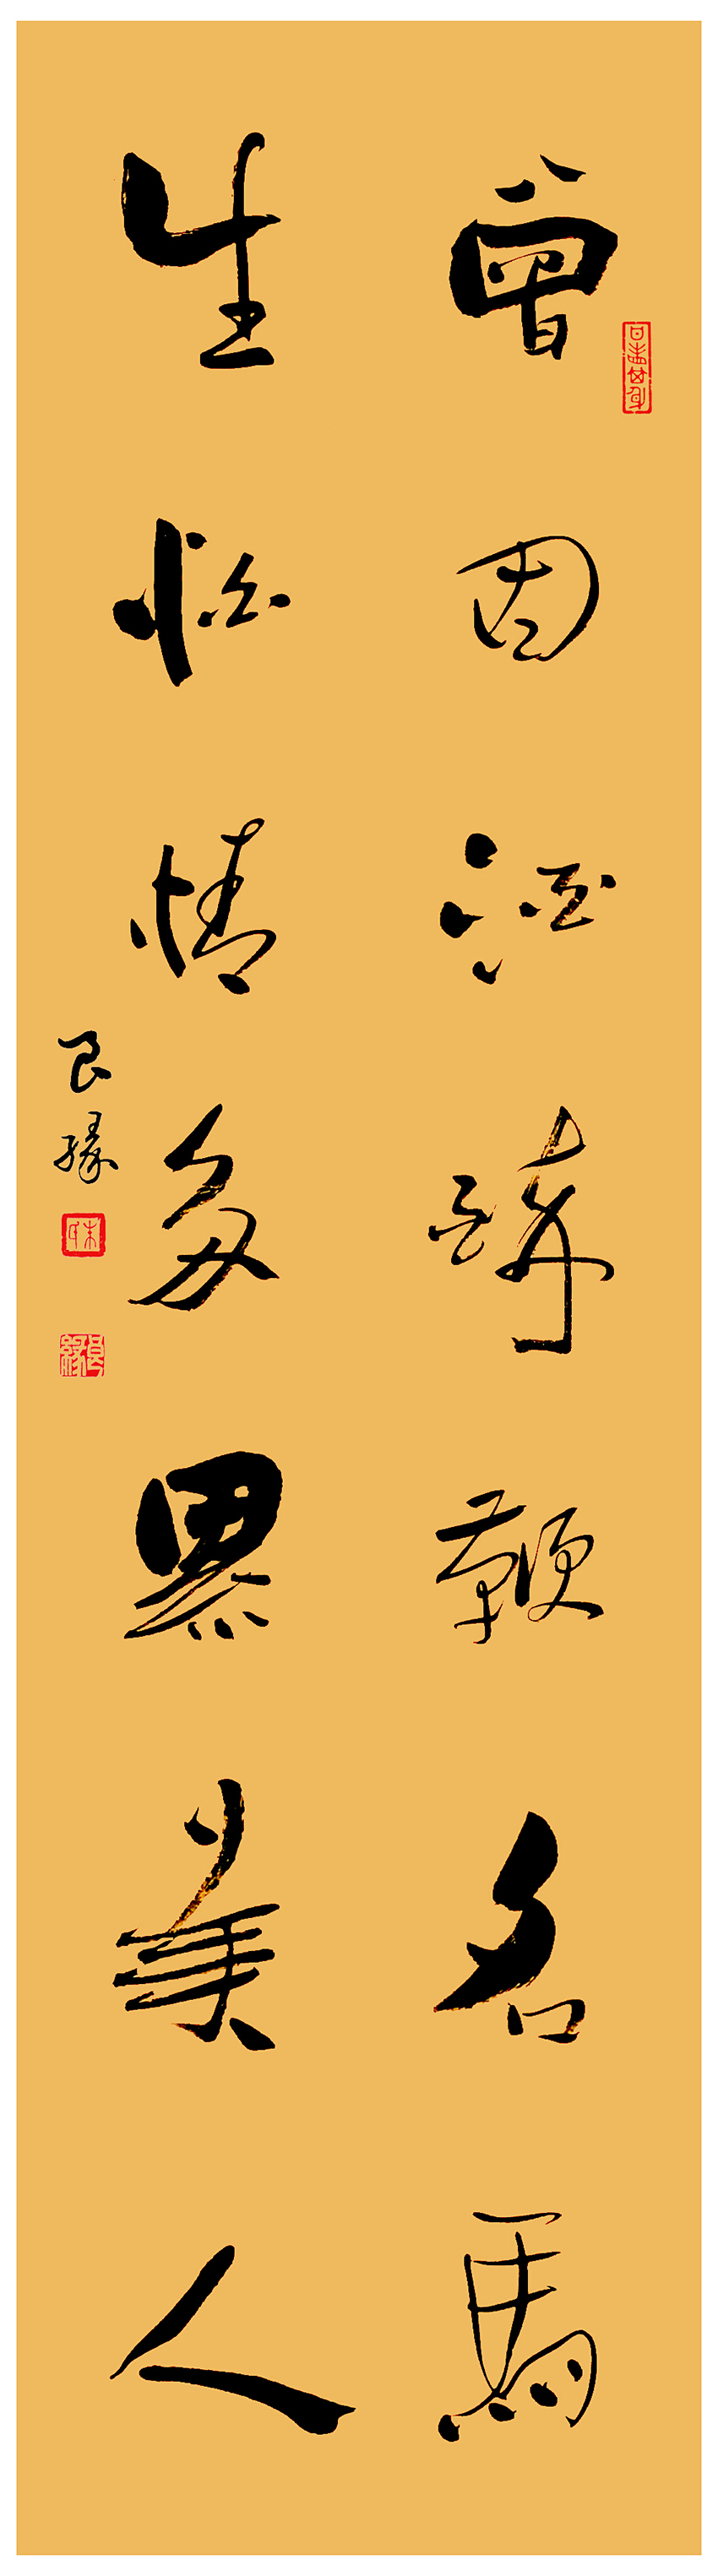 曾因酒醉鞭名马
生怕情多累美人
良缘